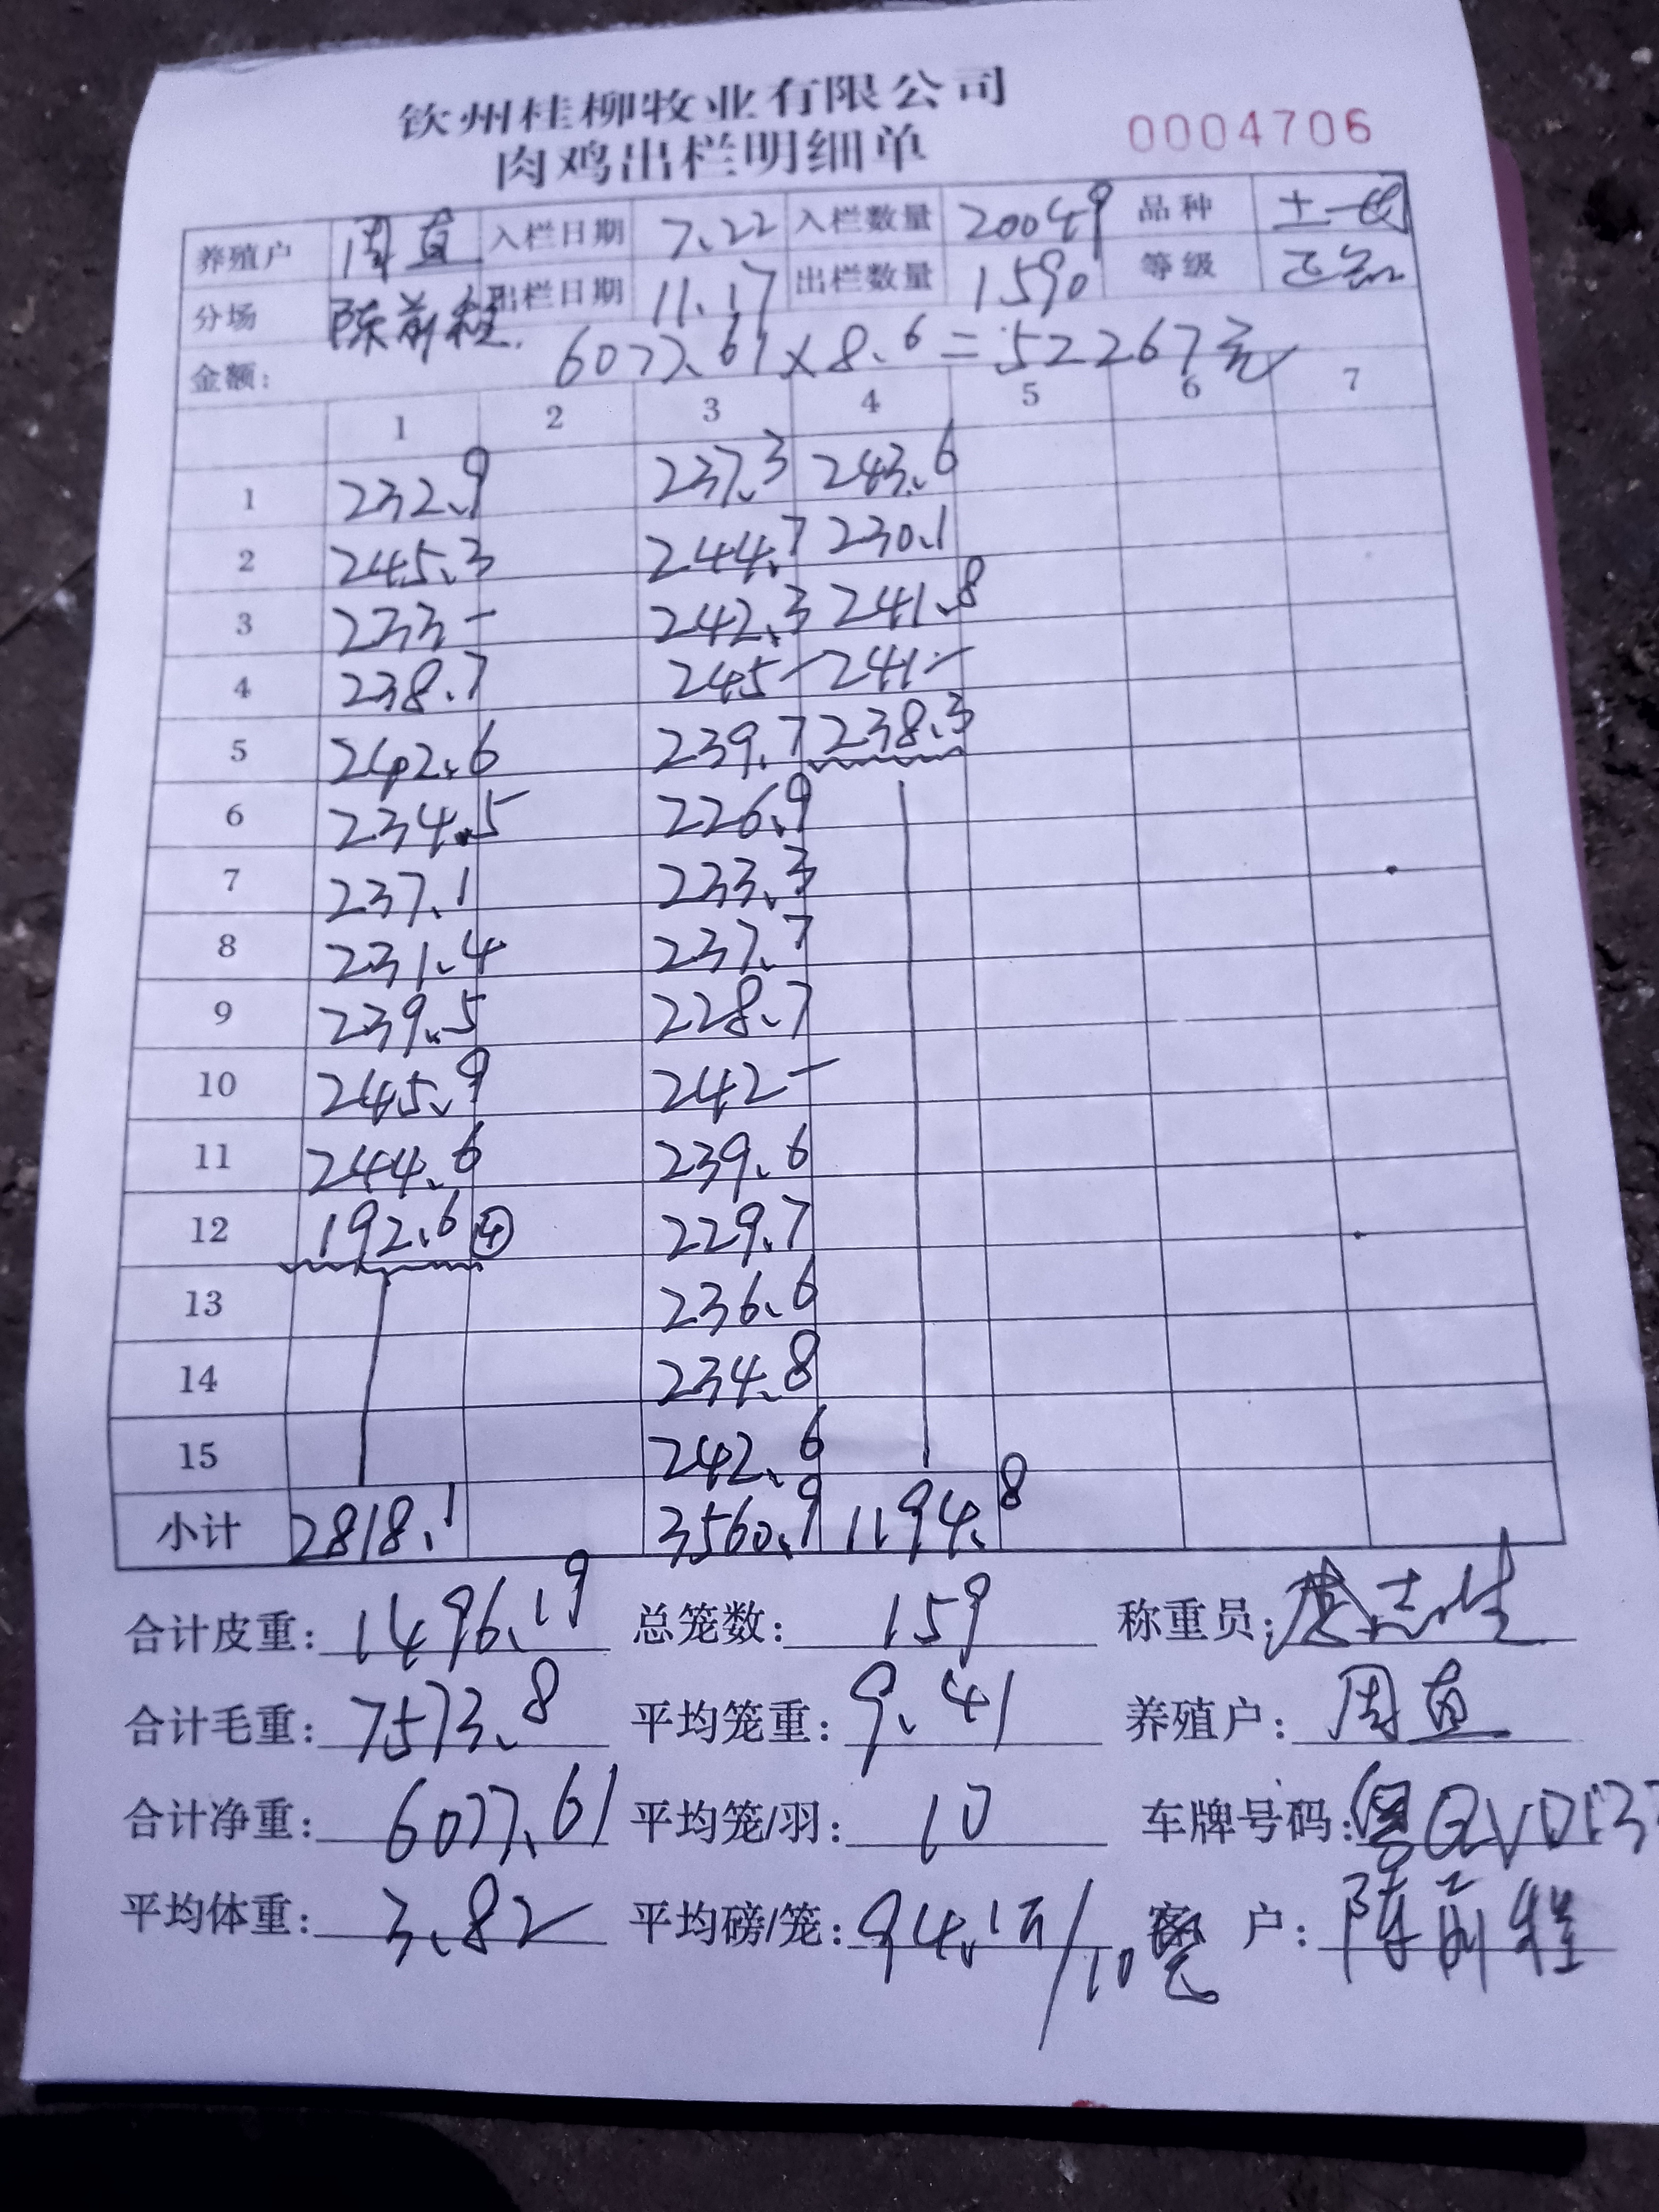 钦州桂柳牧业有限公司
肉鸡出栏明细单 0004706
养殖户 周直 入栏日期 7.22 入栏数量 20049 品种 土一
分场 陈前程. 出栏日期 11.17 出栏数量 1590 等级 正品
金额: 6077.61×8.6=52267元
1 2 3 4 5 6 7
1 232.9 237.3 243.6
2 245.3 244.7 230.1
3 233- 242.3 241.8
4 238.7 245- 241.-
5 242.6 239.7 238.3
6 234.5 226.9
7 237.1 233.3
8 231.4 237.7
9 239.5 228.7
10 245.9 242-
11 244.6 239.6
12 192.6 ④ 229.7
13 236.6
14 234.8
15 242.6
小计 2818.1 3560.9 1194.8
合计皮重: 1496.19 总笼数: 159 称重员: 志
合计毛重: 7573.8 平均笼重: 9.41 养殖户: 周直
合计净重: 6077.61 平均笼/羽: 10 车牌号码: 粤QVD
平均体重: 3.82 平均磅/笼: 94.1 /10 客 户: 陈前程